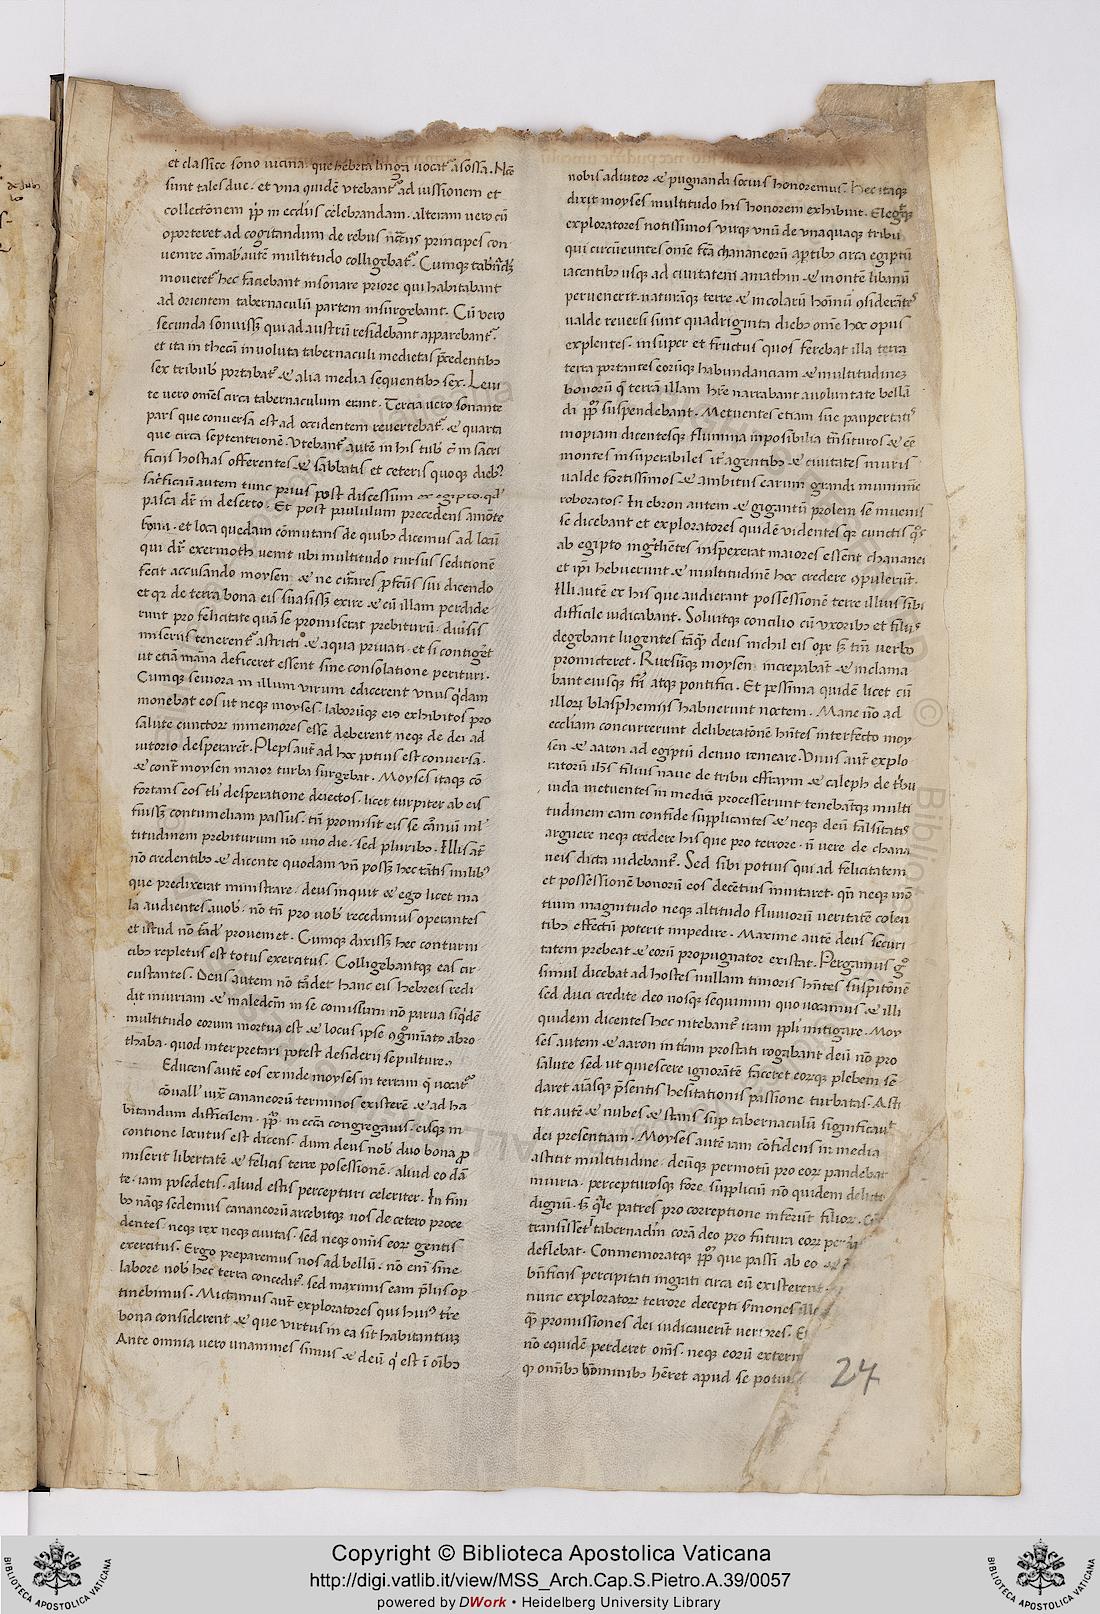 et classice sono vicina. que hebrea lingua vocat᷑ asossa. Nec̄
sunt tales due. et vna quidē vtebant᷑ ad iussionem et
collectōnem ppl̄i in eccl̄iis celebrandam. alteram vero cū
oporteret ad cogitandum de rebus nc̄cu̅s principes con
venire ambab᷒ autē multitudo colligebat᷑. Cumque
moveret᷑ hec faciebant in sonare priore qui habitabant
ad orientem tabernaculū partem insurgebant. Cū vero
secunda sonuissꝫ qui ad austrū residebant apparebant᷑.
et ita in thecā involuta tabernaculi medietas p̄cedentibꝫ
sex tribubꝫ portabat᷑ & alia media sequentibꝫ sex. Levi
te vero om̄es circa tabernaculum erant. Tercia vero sonante
pars que conversa est ad occidentem revertebat᷑. & quarta
que circa septentrionē. Vtebant᷑ autē in his tub᷒ in sacri
ficiis hostias offerentes & sabbatis et ceteris quoque dieb᷒.
sac᷑ficiū autem tunc prius post discessum ex egipto. qd̄
pasca dr̄ in deserto. Et post paululum precedens a monte
sona. et loca quedam cōmutans de quibꝫ dicemus ad locū
qui dr̄ exermoth venit ubi multitudo rursus seditionē
fecit accusando moysen. & ne
et qꝛ de terra bona eis suasissꝫ exire & cū illam perdide
runt pro felicitate quā se promiserat prebiturū. diversis
miseriis tenerent᷑ astricti & aqua privati. et si contiget
ut etiā manna deficeret essent sine consolatione perituri.
Cumque seviora in illum virum edicerent vnus q̇dam
monebat eos ut neque moyses laborūque eius exhibitos pro
salute cunctoꝝ inmemores esse deberent neque de dei ad
iutorio desperarēt. Plebs aut̄ ad hec potius est conversa.
& cont᷑ moysen maior turba surgebat. Moyses itaque cō
fortans eos tl̄i desperatione deiectos. licet turpiter ab eis
fuissꝫ contumeliam passus. tn̄ promisit eis se carniū ml̄
titudinem prebiturum nō uno die. sed pluribꝫ. Illis at̄
nō credentibꝫ & dicente quodam vn̄ possꝫ hec tātis milibꝫ
que predixerat ministrare. deus inquit & ego licet ma
la audientes a vob. nō tn̄ pro vob᷒ recedimus operantes
et istud nō tardꝫ proveniet. Cumque dixissꝫ hec coturni
cibꝫ repletus est totus exercitus. Colligebantque eas cir
custantes. Deus autem nō tardet hanc eis hebreis redi
dit iniuriam & maledcm̄ in se comissum nō parva siq̇dē
multitudo eorum mortua est & locus ipse abro
thaba. quod interpretari potest desiderii sepulture.
Educens autē eos exinde moyses in terram q̄ vocat᷑
covall᷒ iux᷑ cananeorū terminos existere & ad ha
bitandum difficilem. ppl̄m in ecc̄a congregavit. eisque in
contione locutus est dicens. dum deus nob᷒ duo bona p
miserit libertatē & felicis terre posessionē. aliud eo dā
te. iam posedetis. aliud estis percepturi celeriter. In fini
bꝫ nāque sedemus cananeorū arcebitque nos de cetero proce
dentes. neque rex neque civitas. sed neque om̄is eoꝝ gentis
exercitus. Ergo preparemus nos ad bellū. nō eni sine
labore nob᷒ hec terra concedit᷑. sed maximis eam p̄liis op
tinebimus. Mictamus aut̄ exploratores qui hui᷒ tr̄e
bona considerent & que virtus in ea sit habitantiū
Ante omnia vero unanimes simus & deū q̇ est i oībꝫ
nobis adiutor & pugnandi socius honoremus. Hec itaque
dixit moyses multitudo his honorem exhibuit. Elegitque
exploratores notissimos virosque unū de vnaquaque tribu
qui circūeuntes om̄e chananeorū a p̄tibꝫ circa egiptū
iacentibꝫ usque ad civitatem amathin & montē libanū
pervenerit. naturāque terre & incolarū hoīnū ꝯsiderātes
valde reversi sunt quadriginta diebꝫ om̄e hoc opus
explentes. insuper et fructus quos ferebat illa terra
terra portantes eorūque habundanciam & multitudinē
bonorū q̄ terrā illam hr̄e narrabant a voluntate bellā
di ppl̄m suspendebant. Metuentes etiam sue paupertatis
inopiam dicentesque flumina inposibilia trānsituros & ēē
montes insuperabiles it᷑ agentibꝫ & civitates muris
valde fortissimos & ambitus earum grandi munimine
roboratos. In ebron autem & gigantū prolem se invenis
se dicebant et exploratores quidē videntes qꝛ cunctis q̄s
ab egipto ingredientes inspexerat maiores essent chananei
et ip̄i hebuerunt. & multitudinē hec credere ꝯpulerūt.
Illi autē ex his que audierant possessionē terre illius sibi
difficile iudicabant. Solutoque concilio cū vxoribꝫ et filiis
degebant lugentes tāque deus nichil eis ope sꝫ tm̄ verbo
promicteret. Rursūque moysen increpabāt & inclama
bant eiusque fr̄i atque pontifici. Et pessima quidē licet cū
illoꝝ blasphemiis habuerunt noctem. Mane vō ad
eccl̄iam concurrerunt deliberatōnē hn̄tes interfecto moy
sen & aaron ad egiptū denuo remeare. Vnus aut̄ explo
ratorū ihs̄ filius nave de tribu effraym & caleph de tribu
iuda metuentes in mediū processerunt tenebantque multi
tudinem eam confide supplicantes & neque deū falsitatis
arguere neque credere his que pro terrore. n̄ vere de chana
neis dicta videbant᷑. Sed sibi potius qui ad felicitatem
et possessionē bonorū eos decētius invitaret. qn̄ neque mō
tium magnitudo neque altitudo fluviorū veritatē colen
tibꝫ effectū poterit impedire. Maxime autē deus securi
tatem prebeat & eorū propugnator existat. Pergamus g̊
simul dicebat ad hostes nullam timoris hn̄tes suspitōnē
sed duci credite deo nosque sequimini quo vocamus & illi
quidem dicentes hec nitebant᷑ iram ppl̄i mitigare. Moy
ses autem & aaron in terram prostati rogabant deū nō pro
salute sed ut quiescere ignorātē faceret eorque plebem se
daret aīasque p̄sentis hesitationis passione turbatas. Asti
tit autē & nubes & stans sup tabernaculū significavit
dei presentiam. Moyses autē iam cōfidens in media
astitit multitudine. deūque permotū pro eoꝝ pandebat
iniuria. perceptiurosque fore supplicium nō quidem delicto
dignū. sꝫ q̄le patres pro correptione inferūt filioꝝ. Cū
transisset tabernaclm̄ corā deo pro futura eoꝝ
deflebat. Conmemoratque ppl̄m que passi ab eo
bn̄ficiis percipitati ingrati circa eū existerent.
nunc exploratoꝝ terrore decepti
qm̄ promissiones dei iudicaverīt
nō equidē perderet om̄s. neque eorū
qꝫ om̄ibꝫ hominibꝫ hēret apud se
27
Copyright © Biblioteca Apostolica Vaticana
http://digi.vatlib.it/view/MSS_Arch.Cap.S.Pietro.A.39/0057
powered by DWork • Heidelberg University Library
BIBLIOTECA APOSTOLICA VATICANA
BIBLIOTECA APOSTOLICA VATICANA